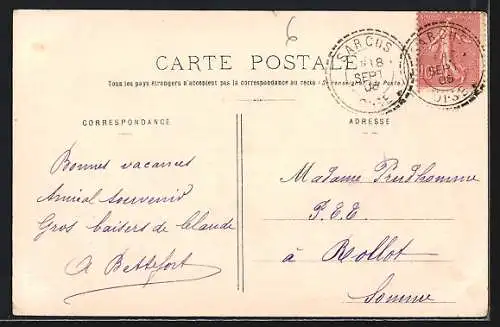 6
CARTE POSTALE
Tous les pays étrangers n'acceptent pas la correspondance au recto
SARCUS
18
SEPT
06
OISE
SARCUS
SEPT
06
OISE
CORRESPONDANCE
Bonnes vacances
Amical souvenir
Gros baisers de Claude
A Bettefort
ADRESSE
Madame Prudhomme
P.E.E.
à Rollot
Somme